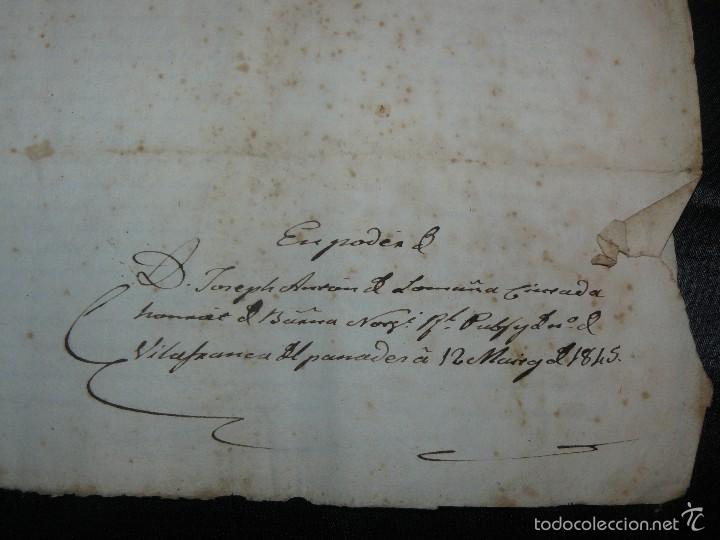 En poder de
D. Joseph Anton de Lomaña Ciutada
honrat de Barna Not.i Rl. Pub. y de no. de
Vilafranca del panades à 12 Mars de 1815.
todocoleccion.net
tc